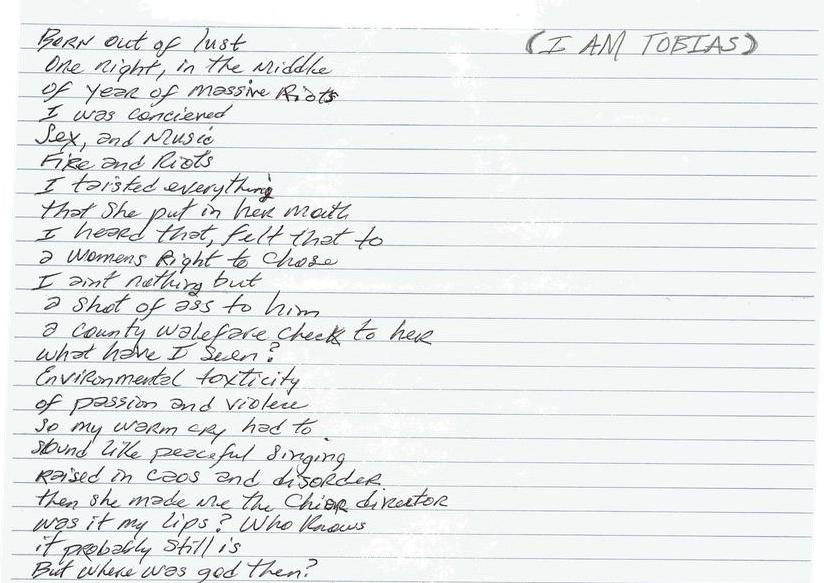 (I AM TOBIAS)
Born out of lust
One night, in the Middle
of year of massive Riots
I was concieved
Sex, and Music
Fire and Riots
I taisted everything
that She put in her moath
I heard that, felt that to
a womens Right to chose
I aint nothing but
a shot of ass to him
a county walefare check to her
what have I seen?
Environmental toxticity
of passion and violece
so my warm cry had to
sound like peaceful singing
raised in caos and disorder
then she made me the Chior director
was it my lips? Who Knows
it probably still is
But where was god then?